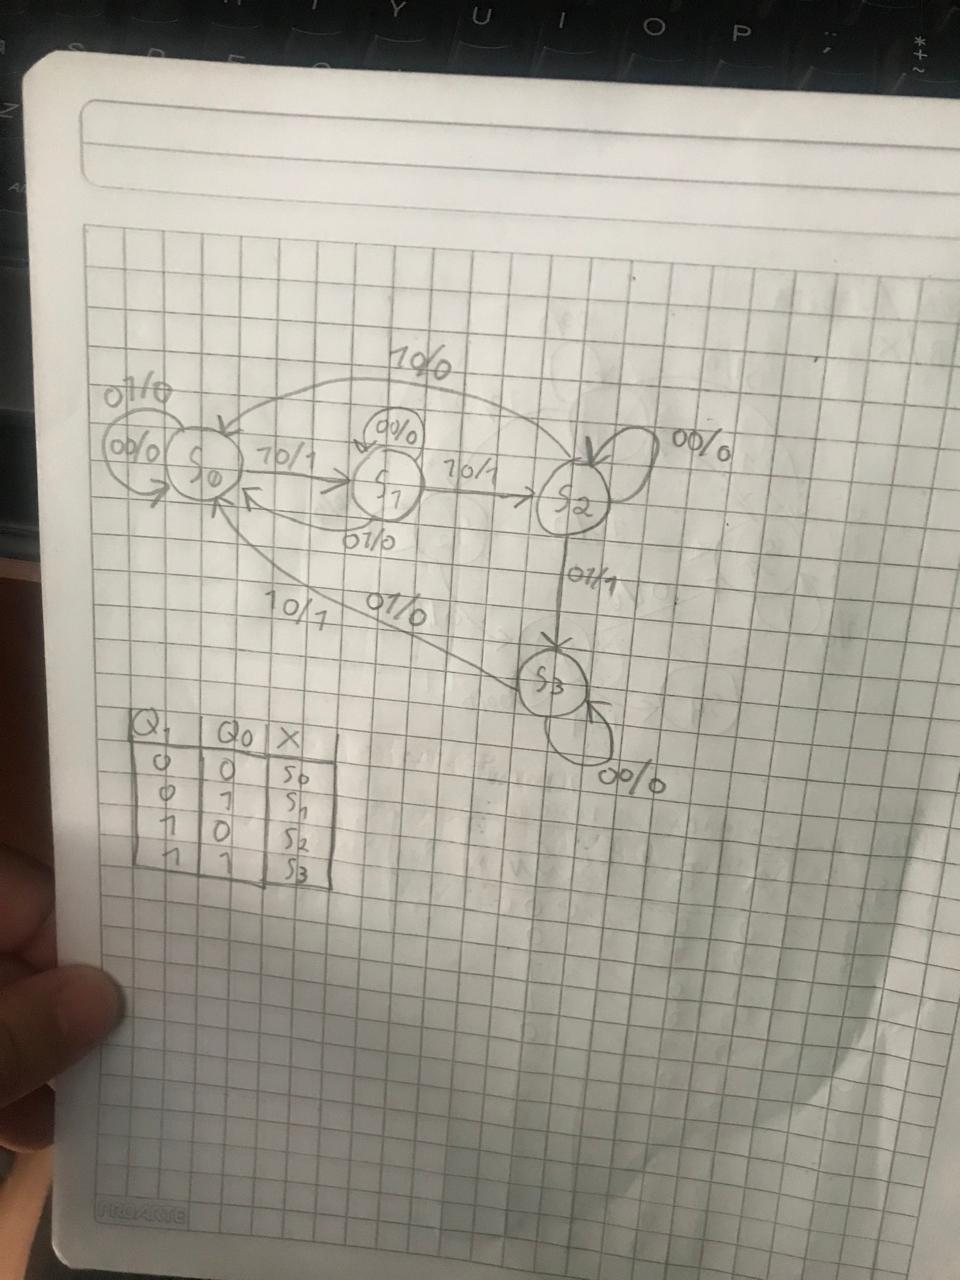 Y U I O P ;
10/0
01/0
00/0
00/0
00/0
S0
10/1
S1
10/1
S2
01/0
01/1
10/1
01/0
S3
00/0
Q1 Q0 X
0 0 S0
0 1 S1
1 0 S2
1 1 S3
PROARTE